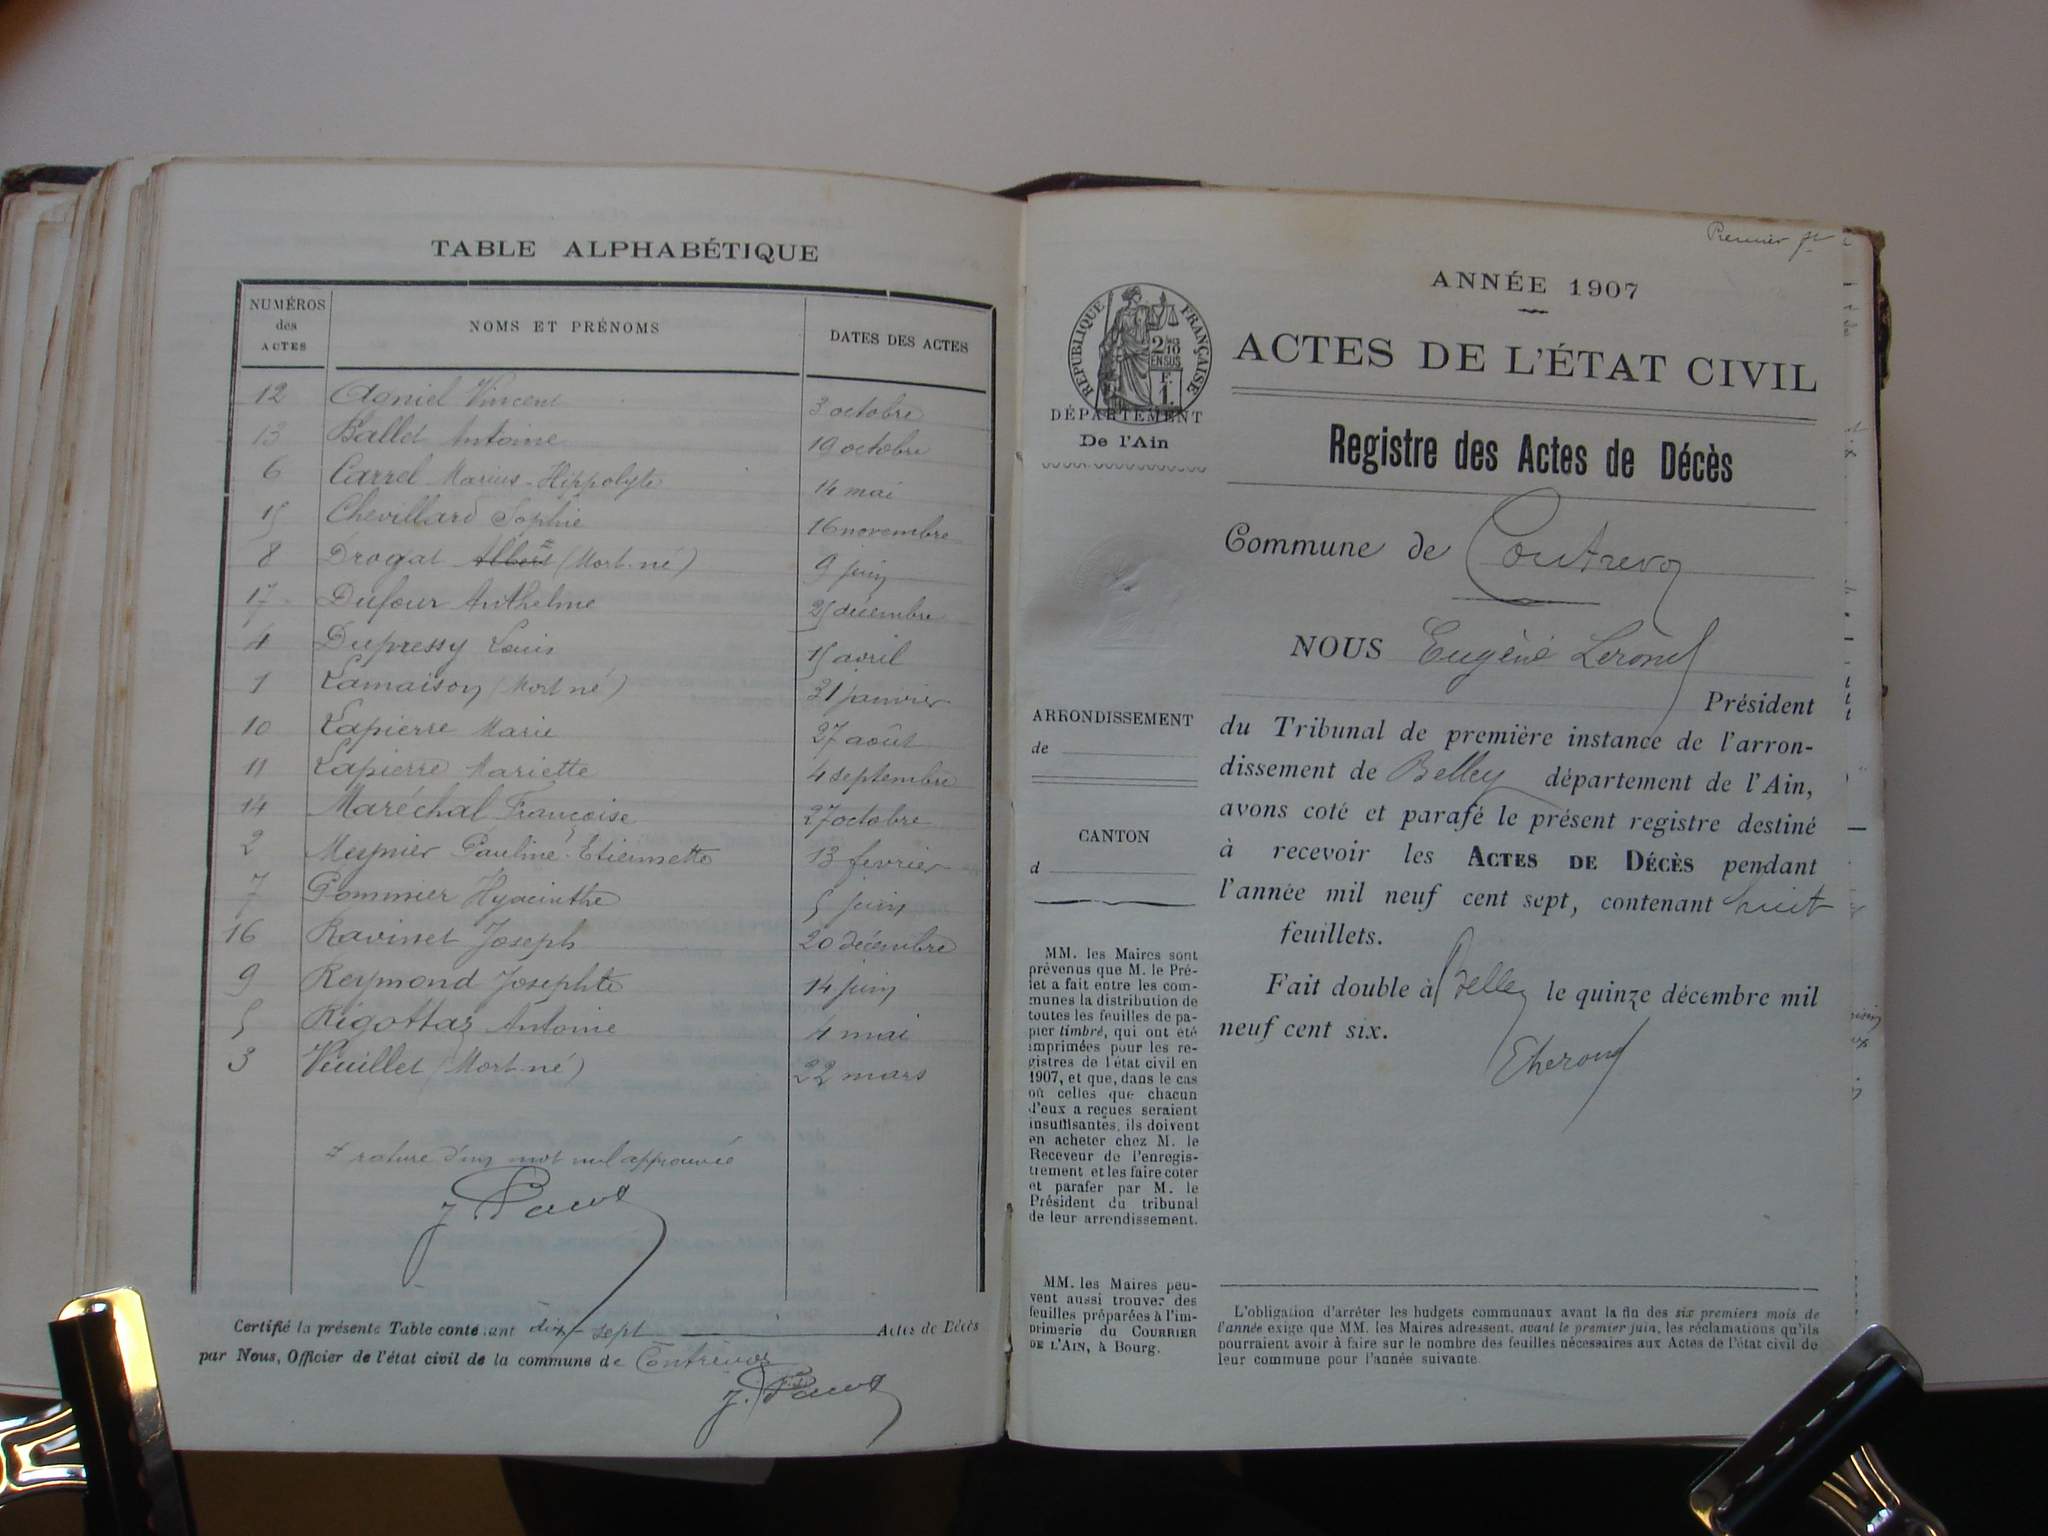 TABLE ALPHABÉTIQUE
NUMÉROS des ACTES NOMS ET PRÉNOMS DATES DES ACTES
12 Agniel Vincent 3 octobre
13 Ballet Antoine 19 octobre
6 Carrel Marius-Hippolyte 14 mai
15 Chevillard Sophie 16 novembre
8 Drogat Albert (Mort-né) 9 juin
17 Dufour Anthelme 25 décembre
4 Dupressy Louis 15 avril
1 Lamaison (Mort né) 31 janvier
10 Lapierre Marie 27 août
11 Lapierre Mariette 4 septembre
14 Maréchal Françoise 27 octobre
2 Meynier Pauline-Etiennette 13 février
7 Pommier Hyacinthe 5 juin
16 Ravinet Joseph 20 décembre
9 Reymond Josephte 14 juin
5 Rigottaz Antoine 4 mai
3 Veuillet (Mort-né) 22 mars
rature d'un mot nul approuvée
Certifié la présente Table contenant dix-sept Actes de Décès
par Nous, Officier de l'état civil de la commune de Contrevoz
Premier
ANNÉE 1907
ACTES DE L'ÉTAT CIVIL
RÉPUBLIQUE FRANÇAISE
2/10
EN SUS
F.
1.
DÉPARTEMENT
De l'Ain
Registre des Actes de Décès
Commune de Contrevoz
NOUS Eugène
Président
du Tribunal de première instance de l'arron-
dissement de Belley département de l'Ain,
avons coté et parafé le présent registre destiné
à recevoir les ACTES DE DÉCÈS pendant
l'année mil neuf cent sept, contenant huit
feuillets.
Fait double à Belley le quinze décembre mil
neuf cent six.
ARRONDISSEMENT
de
CANTON
d
MM. les Maires sont
prévenus que M. le Pré-
fet a fait entre les com-
munes la distribution de
toutes les feuilles de pa-
pier timbré, qui ont été
imprimées pour les re-
gistres de l'état civil en
1907, et que, dans le cas
où celles que chacun
d'eux a reçues seraient
insuffisantes, ils doivent
en acheter chez M. le
Receveur de l'enregis-
trement et les faire coter
et parafer par M. le
Président du tribunal
de leur arrondissement.
MM. les Maires peu-
vent aussi trouver des
feuilles préparées à l'im-
primerie du COURRIER
DE L'AIN, à Bourg.
L'obligation d'arrêter les budgets communaux avant la fin des six premiers mois de
l'année exige que MM. les Maires adressent, avant le premier juin, les réclamations qu'ils
pourraient avoir à faire sur le nombre des feuilles nécessaires aux Actes de l'état civil de
leur commune pour l'année suivante.